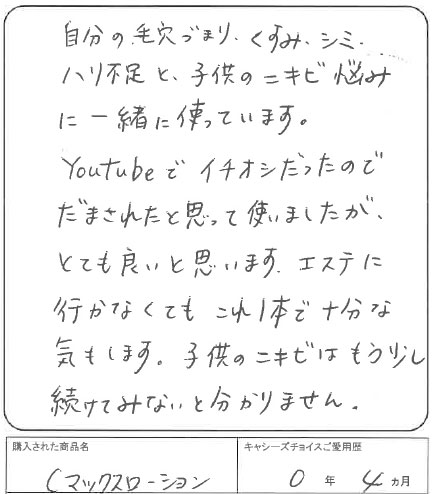 自分の毛穴づまり、くすみ、シミ、
ハリ不足と、子供のニキビ悩み
に一緒に使っています。
Youtubeでイチオシだったので
だまされたと思って使いましたが、
とても良いと思います。エステに
行かなくてもこれ1本で十分な
気もします。子供のニキビはもう少し
続けてみないと分かりません。
購入された商品名
キャシーズチョイスご愛用歴
Cマックスローション
0年4ヵ月